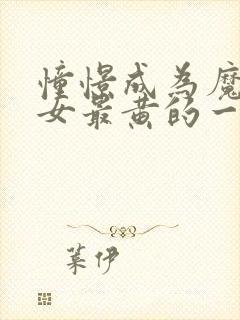 憧憬成为魔
女最黄的一
叶伊